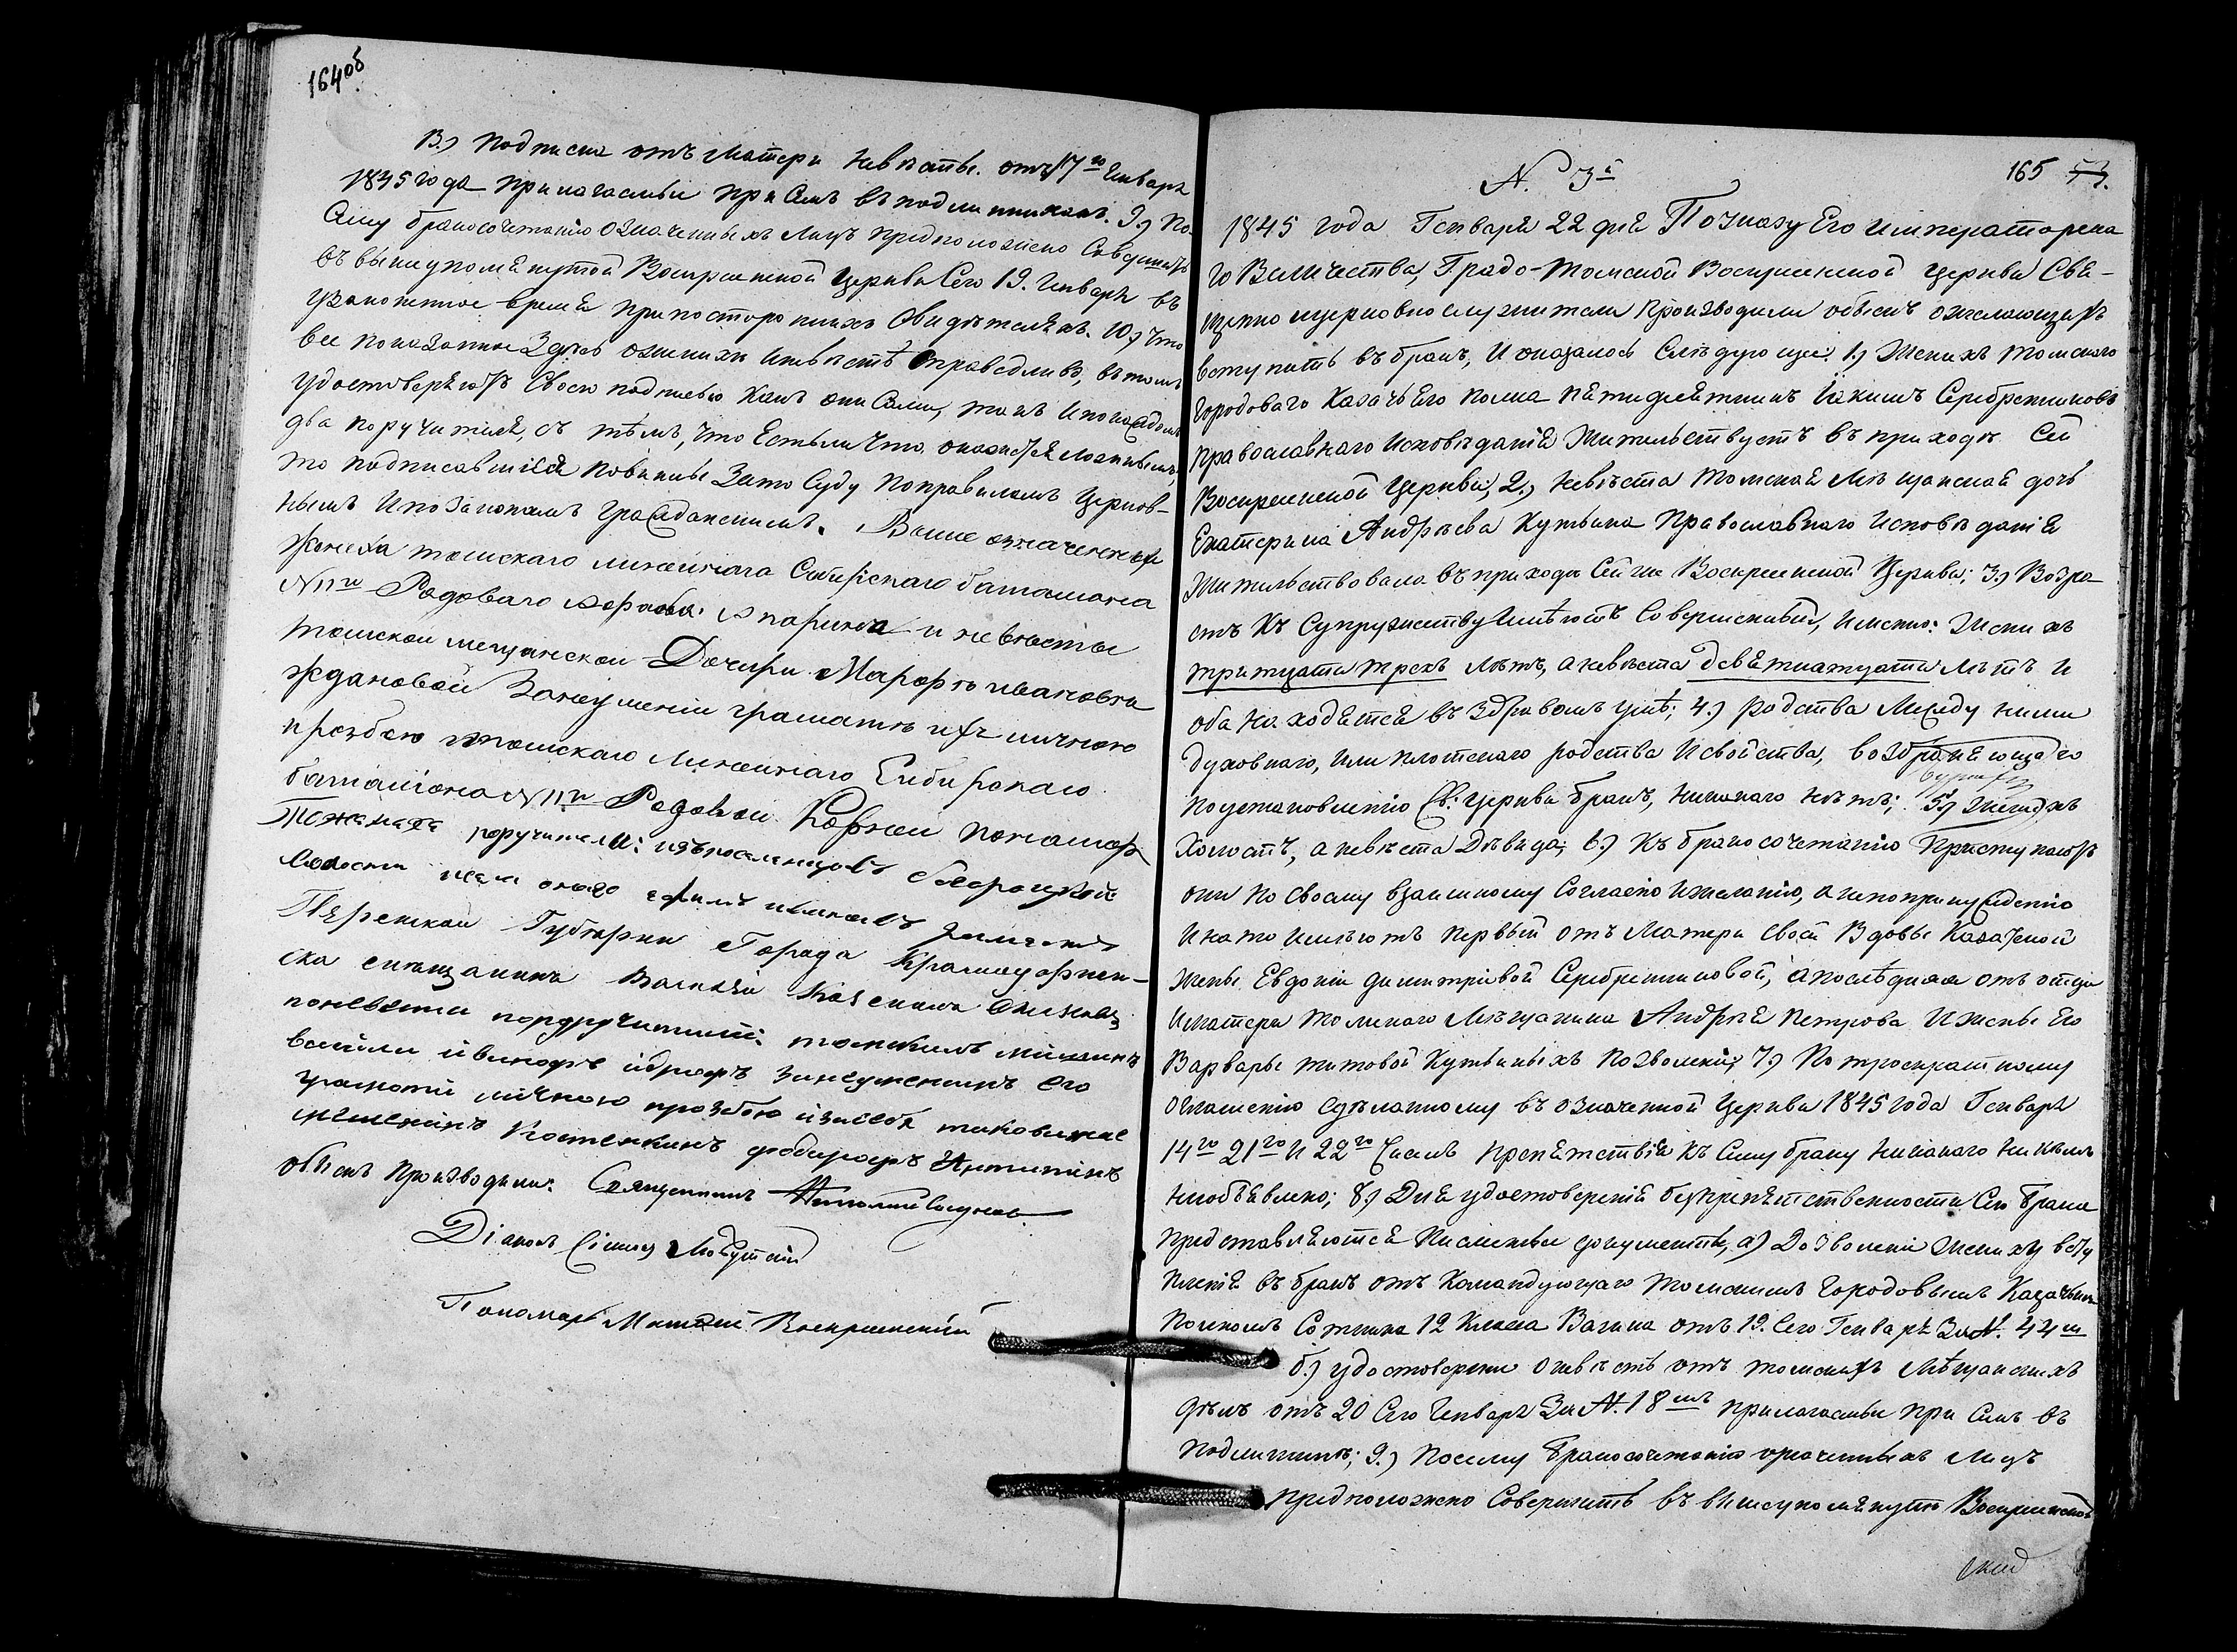 164об
В.) Подписка отъ Матери Невѣсты. отъ 17го Генваря
1845 года прилагаемыя при семъ въ подлинникахъ. 9.) По
сему бракосочетанію означенныхъ лицъ предположено Совершить
въ вышеупомянутой Воскресенской Церкви Сего 19. Генваря въ
узаконенное время при постороннихъ Свидѣтеляхъ. 10.) Что
все показанное здѣсь о женихѣ и невѣстѣ Справедливо, въ томъ
удостовѣряютъ Своею подписью какъ они Сами, такъ и по каждомъ
два поручителя, съ тѣмъ, что Естьли что окажется ложнымъ,
то подписавшіеся повинны За то Суду по правиламъ Церков-
нымъ и по Законамъ гражданскимъ. Выше означенныхъ
Жениха томскаго линейнаго Сибирскаго баталиона
N 11го Рядоваго и невѣсты
томской мещанской Дочири Марфы ивановны
ждановой За неуменіи граматѣ их личною
прозбою томскаго Линейнаго Сибирскаго
баталіона N 11го Рядовой Корней
поручители: изъ поселенцовъ
Волости
Губернии Города Красноуфимска
Василей
по невѣсти поручители: томский мещанинъ
за неумениемъ его
грамоти личною прозбою и за себя
мещанинъ
обыскъ производили: Священникъ
Діаконъ
Пономарь Воскресенскій
165
N. 3й
1845 года Генваря 22 дня По указу Его Императорска
го Величества, Градо-Томской Воскресенской Церкви Свя-
щенно и церковно служители производили обыскъ о желающихъ
вступить въ бракъ, и оказалось Слѣдующее: 1.) Женихъ томскаго
городоваго Казачьего полка пятидесятникъ Іакимъ Серебренниковъ
православнаго исповѣданія Жительствуетъ въ приходѣ Сей
Воскресенской Церкви, 2.) Невѣста томская Мѣщанская дочь
Екатерина Андрѣева Кутьина православнаго исповѣданія
Жительствовала въ приходѣ Сей же Воскресенской Церкви; 3.) Возра-
стъ къ Супружеству Имѣютъ Совершенный, именно: Женихъ
тритцати трехъ лѣтъ, а невѣста девятнатцати лѣтъ и
оба находятся въ здравомъ умѣ; 4.) родства Между ними
духовнаго, или плотскаго родства и свойства, возбраняющаго
по установленію Св: Церкви бракъ, никакого нѣтъ; 5.) Женихъ
Холостъ, а невѣста Дѣвица; 6.) Къ бракосочетанію Приступаютъ
они по своему взаимному Согласію и желанію, а не по принужденію
и на то имѣютъ первый отъ Матери своей Вдовы Казачьей
жены Евдокіи Димитріевой Серебренниковой, а послѣдняя отъ отца
и матери томскаго Мѣщанина Андрѣя Петрова и жены его
Варвары Титовой Кутьиныхъ позволеніе; 7.) По троекратному
оглашенію сдѣланному въ означенной Церкви 1845 года Генваря
14го 21го и 22го Числъ препятствія къ Сему браку никакого никѣмъ
необъявлено; 8.) Для удостовѣренія безпрепятственности Сего брака
представляются письменные документы, а.) Дозволеніе Жениху всту
пленія въ бракъ отъ Командующаго томскимъ городовымъ Казачьимъ
полкомъ Сотника 12 Класса Вагина отъ 19. Сего Генваря За N. 44м
б.) удостовереніе о невѣстѣ отъ томскихъ Мѣщанскихъ
дѣлъ отъ 20 Сего Генваря За N. 18мъ прилагаемые при семъ въ
подлинникѣ; 9.) посему бракосочетаніе означенныхъ лицъ
предположено Совершить въ вышеупомянутой Воскресенской